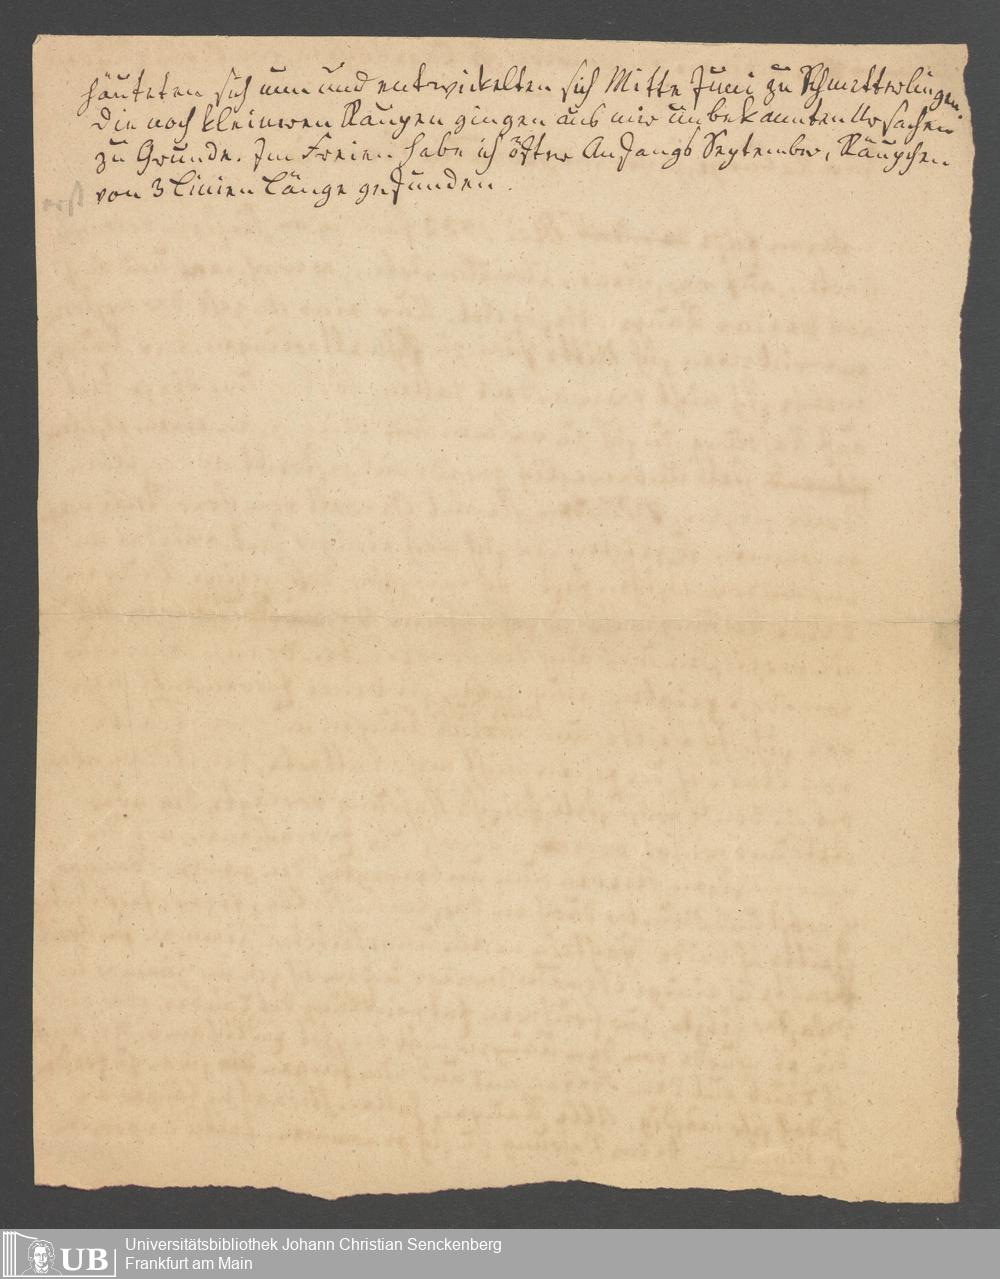 häuteten sich nun und entwickelten sich Mitte Juni zu Schmetterlingen.
Die noch kleineren Raupen gingen aus mir unbekannten Ursachen
zu Grunde. Im Freien habe ich öfter Anfangs September, Räupchen
von 3 Linien Länge gefunden.
UB
Universitätsbibliothek Johann Christian Senckenberg
Frankfurt am Main